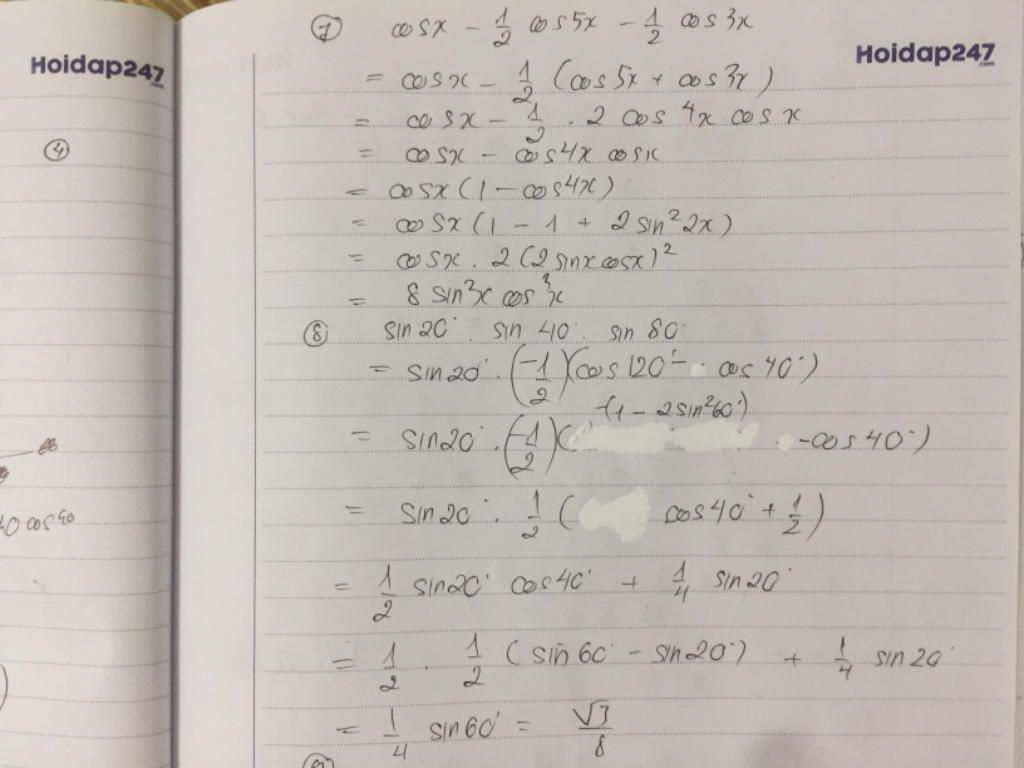 Hoidap247
.com
④
40 cos 40
Hoidap247
.com
⑦ cosx - 1/2 cos5x - 1/2 cos3x
= cosx - 1/2 (cos5x + cos3x)
= cosx - 1/2 . 2 cos4x cosx
= cosx - cos4x cosx
= cosx (1 - cos4x)
= cosx (1 - 1 + 2sin²2x)
= cosx . 2 (2sinxcosx)²
= 8 sin²x cos³x
⑧ sin20° . sin40° . sin80°
= sin20° . (-1/2)(cos120° - cos40°)
(1 - 2sin²60°)
= sin20° . (-1/2)( - cos40°)
= sin20° . 1/2 ( cos40° + 1/2)
= 1/2 sin20° cos40° + 1/4 sin20°
= 1/2 . 1/2 (sin60° - sin20°) + 1/4 sin20°
= 1/4 sin60° = √3/8